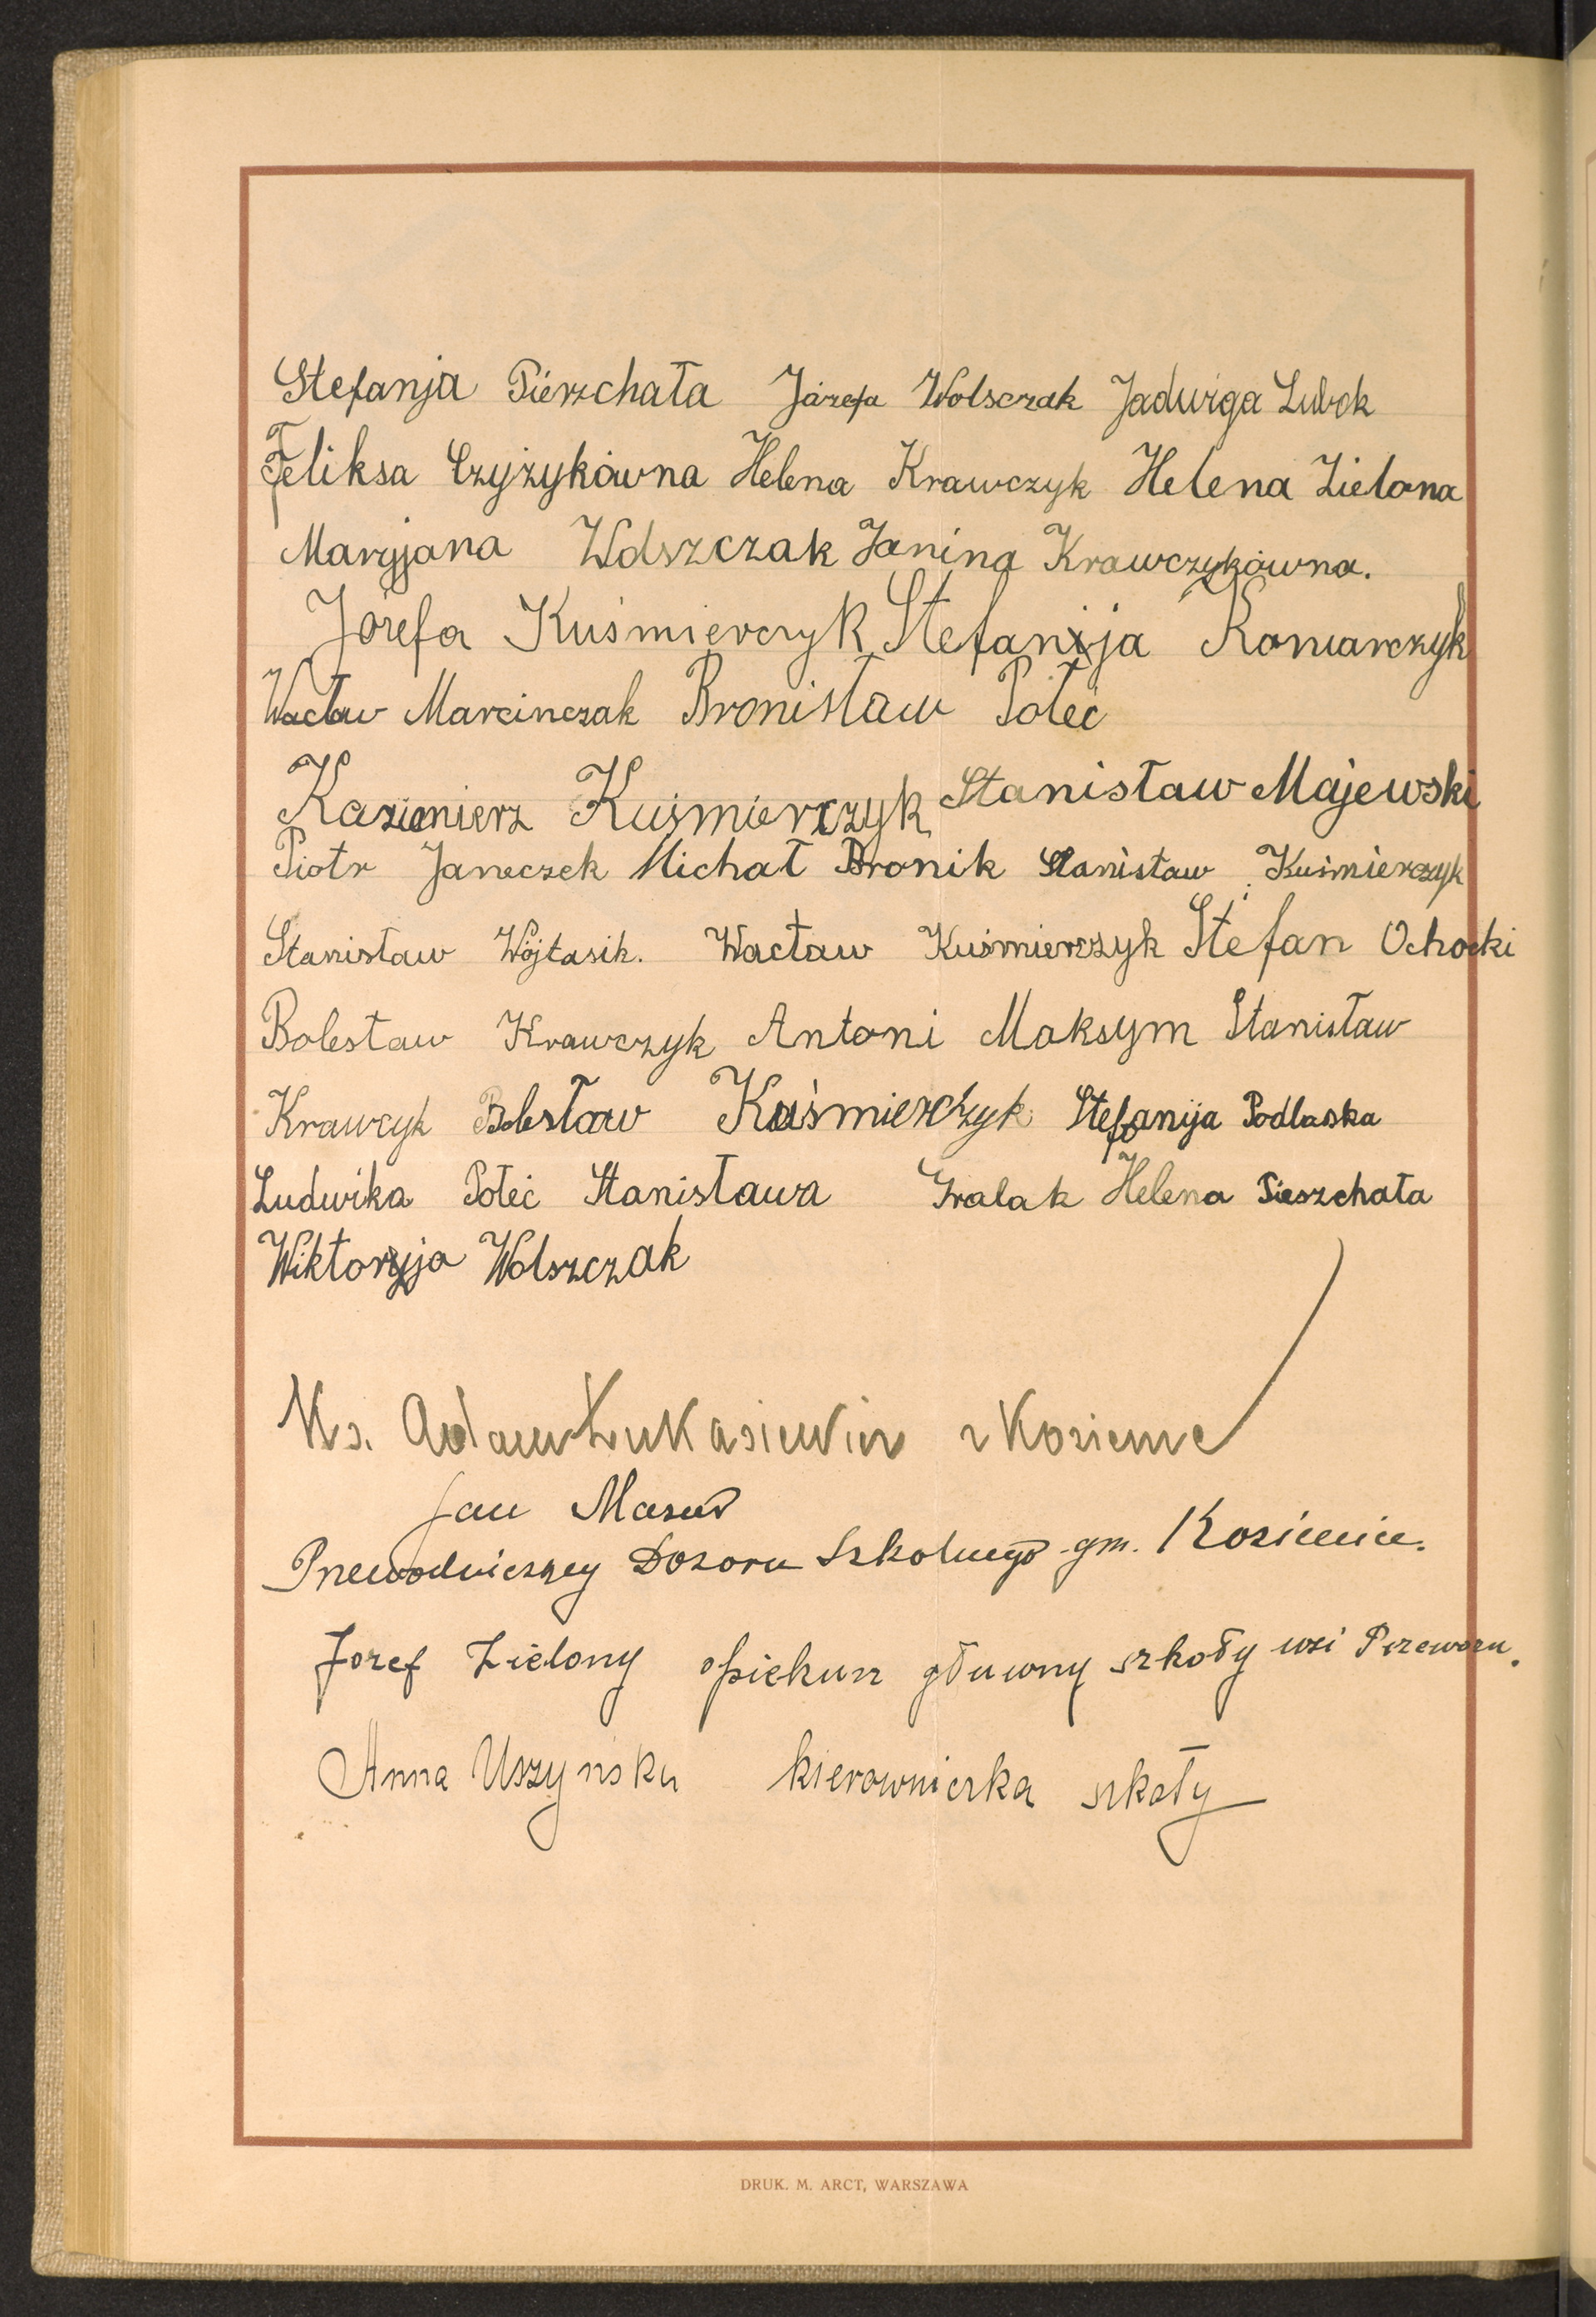 Stefanja Pierzchała Józefa Wolsczak Jadwiga Lubek
Feliksa Czyżykówna Helena Krawczyk Helena Zielona
Maryjana Wolszczak Janina Krawczykówna.
Józefa Kuśmierczyk Stefanija Koniarczyk
Wacław Marcinczak Bronisław Połeć
Kazimierz Kuśmierczyk Stanisław Majewski
Piotr Janeczek Michał Bronik Stanisław Kuśmierczyk
Stanisław Wójtasik. Wacław Kuśmierczyk Stefan Ochocki
Bolesław Krawczyk Antoni Maksym Stanisław
Krawcyk Bolesław Kuśmierczyk Stefanija Podlaska
Ludwika Połeć Stanisława Gralak Helena Pieszchała
Wiktoryja Wolszczak
Ks. Adam Łukasiewicz z Kozienic
Jan Mazur
Przewodniczący Dozoru Szkolnego gm. Kozienice.
Jozef Zielony opiekun głuwny szkoły wsi Przewozu.
Anna Uszyńska kierowniczka szkoły
DRUK. M. ARCT, WARSZAWA